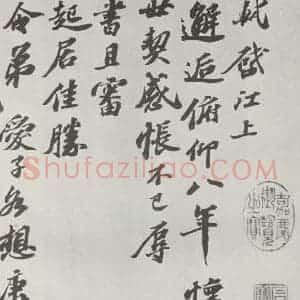 軾啓江上
邂逅俯仰八年懷
此契感悵不已辱
書且審
起居佳勝
令弟愛子各想康
Shufaziliao.com
嘉慶御覽之寶